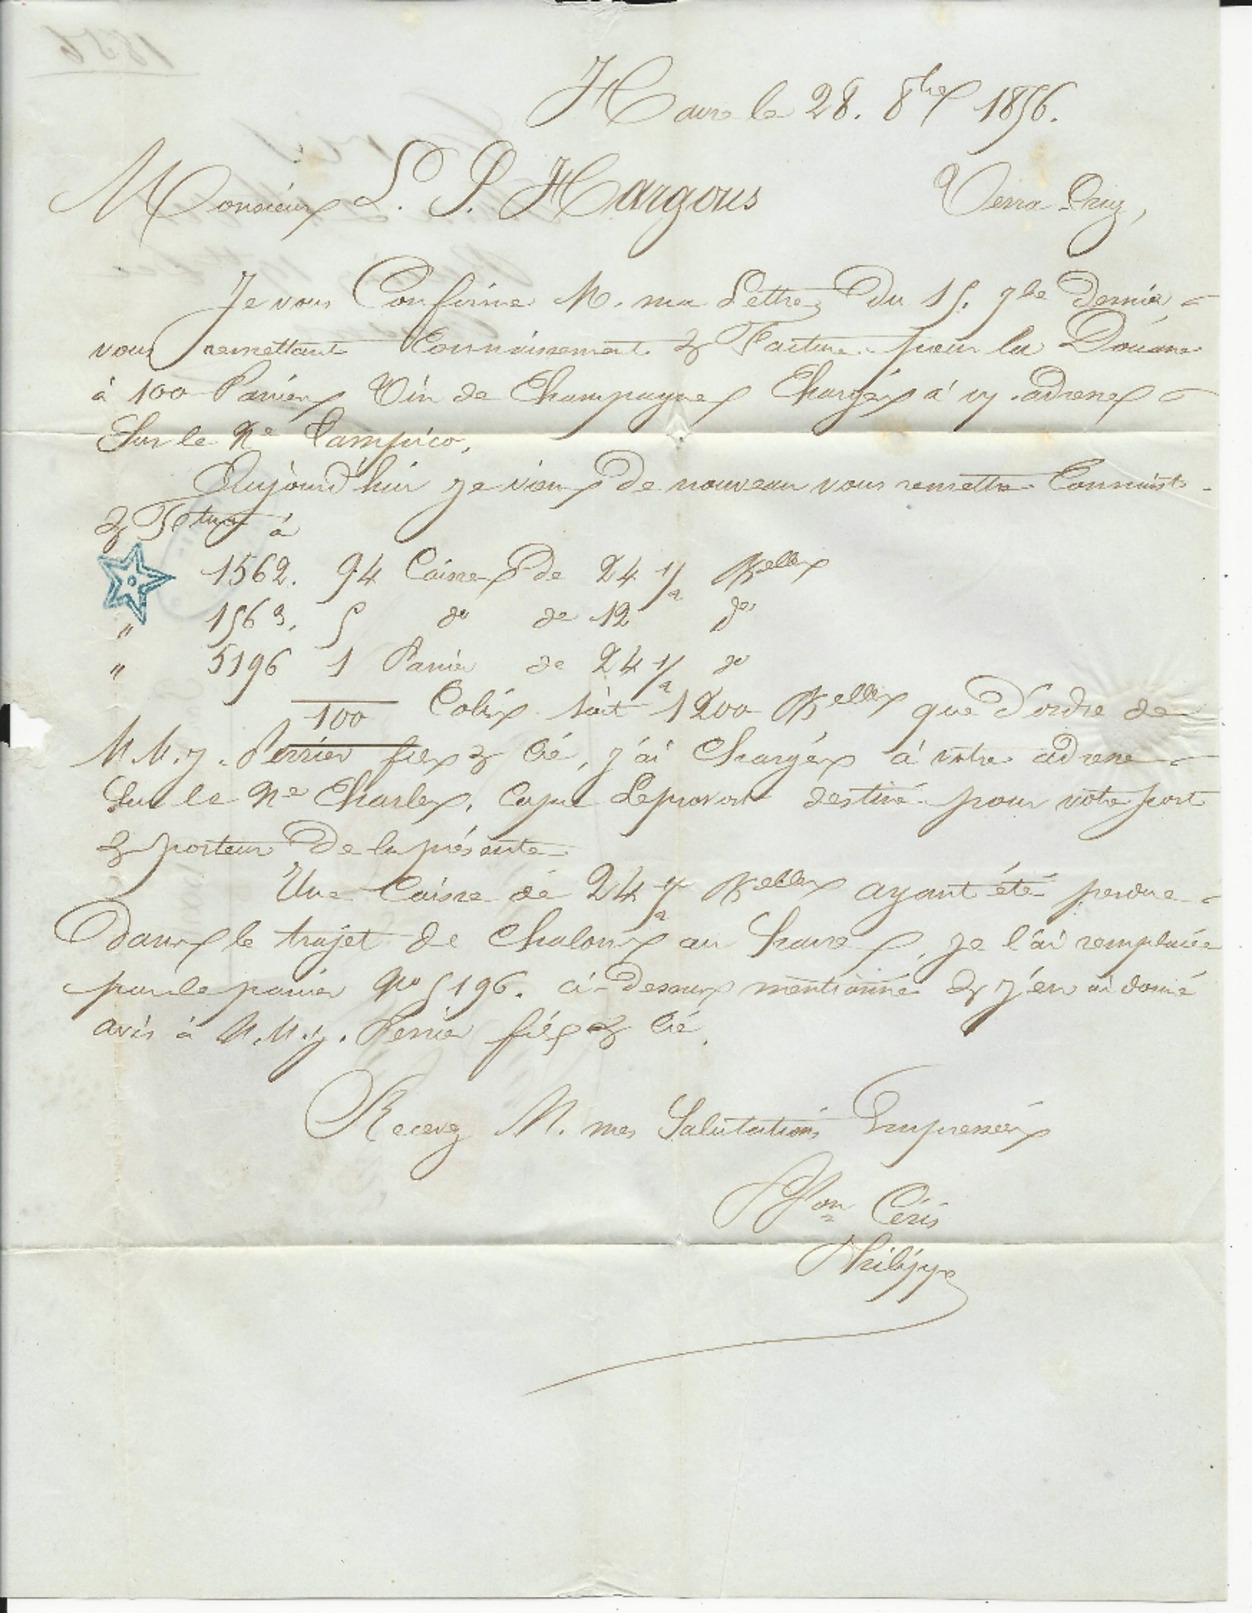 Havre le 28. 8bre 1856.
Monsieur L. P. Hargous Vera Cruz,
Je vous Confirme M. ma Lettre du 15. 7bre dernier
vous remettant Connaissement & Facture pour la Douane
à 100 Paniers Vin de Champagne Chargés à v/. adresse
Sur le Nre Tampico.
Aujourd'hui je viens de nouveau vous remettre Connaisst.
& Fture à
1562. 94 Caisses de 24 1/2 Blles
" 1563. 5 do de 12 do
" 5196 1 Panier de 24 1/2 do
100 Colis soit 1200 Blles que d'ordre de
M.M. J. Perrier fils & Cié, j'ai Chargés à votre adresse
Sur le Nre Charles, Capne Leprovost destiné pour votre port
& porteur de la présente.
Une Caisse de 24 1/2 Blles ayant été perdue
dans le trajet de Chalons au havre, je l'ai remplacée
par le panier No 5196. ci-dessus mentionné & j'en ai donné
avis à M.M. J. Perrier fils & Cié.
Recevez M. mes Salutations Empressées
Ppon Céris
Philippe
1856